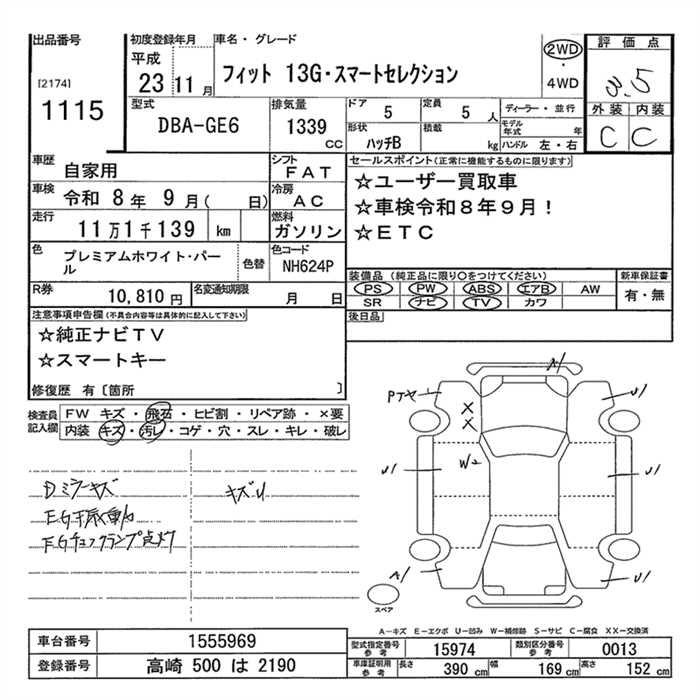 出品番号
[2174]
1115
初度登録年月
平成
23 11月
車名・グレード
フィット 13G・スマートセレクション
2WD
・
4WD
評価点
3.5
外装 内装
C C
型式
DBA-GE6
排気量
1339
CC
ドア
5
定員
5 人
形状
ハッチB
積載
kg
ディーラー・並行
モデル年式 年
ハンドル 左・右
車歴
自家用
シフト
FAT
車検
令和 8年 9月( 日)
冷房
AC
走行
11万1千139 km
燃料
ガソリン
色
プレミアムホワイト・パール
色替
色コード
NH624P
R券
10,810 円
名変通知期限
月 日
セールスポイント(正常に機能するものに限ります)
☆ユーザー買取車
☆車検令和8年9月!
☆ETC
装備品 (純正品に限り〇をつけてください)
PS PW ABS エアB AW
SR ナビ TV カワ
新車保証書
有・無
後日品
注意事項申告欄(不具合内容等は具体的に記入して下さい)
☆純正ナビTV
☆スマートキー
修復歴 有〔箇所 〕
検査員記入欄
FW キズ・飛石・ヒビ割・リペア跡・×要
内装 キズ・汚レ・コゲ・穴・スレ・キレ・破レ
Dミラーキズ
EG振動
EGチェックランプ点灯
キズU
A1
U1
X
X
W2
U1
U1
A1
U1
スペア
A―キズ E―エクボ U―凹み W―補修跡 S―サビ C―腐食 XX―交換済
車台番号 1555969
登録番号 高崎 500 は 2190
型式指定番号参考 15974
類別区分番号参考 0013
車庫証明用参考 長さ 390 cm 幅 169 cm 高さ 152 cm